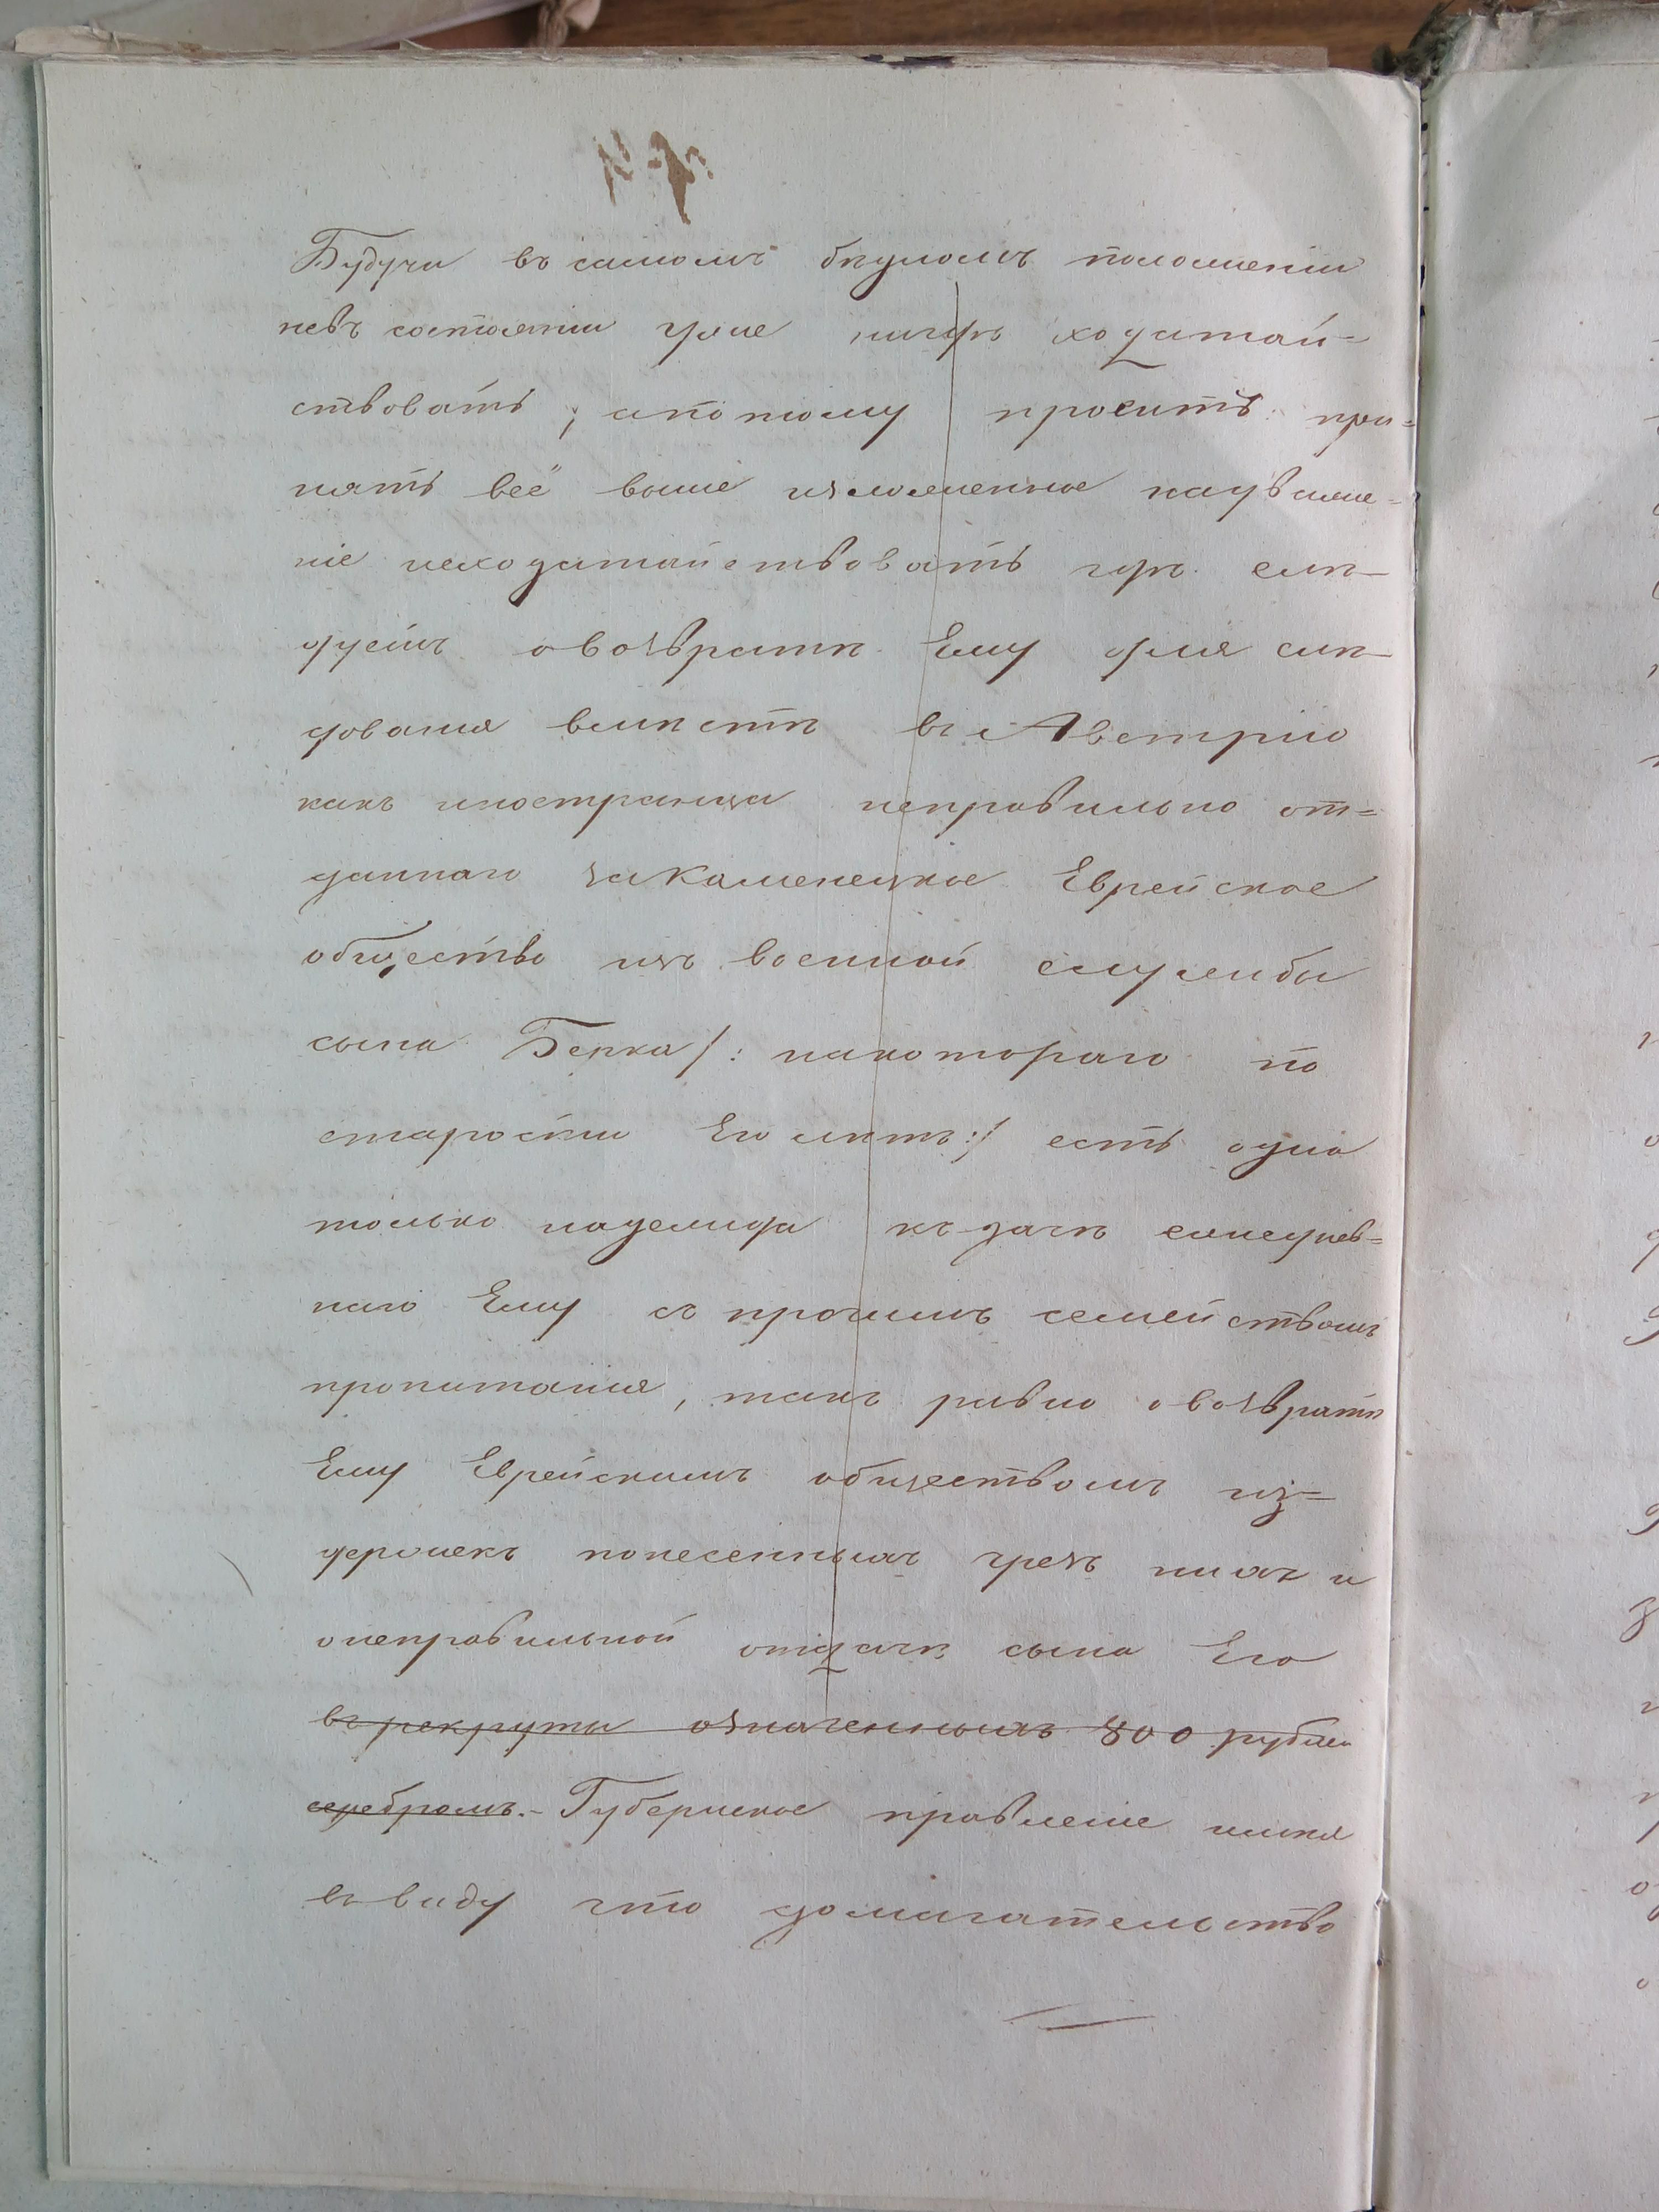 Будучи въ самомъ бѣдномъ положеніи
невъ состояніи уже нигдѣ ходатай=
ствовать, апотому проситъ при=
нять всё выше изложенное наувaже=
ніе исходатайствовать гдѣ слѣ-
дуетъ овозвратѣ Ему для слѣ-
дованія вмѣстѣ въ Австрію
какъ иностранца неправильно от=
даннаго заКаменецкое Еврейское
общество изъ военной службы
сына Берка/: накотораго по
старости Его лѣтъ:/ есть одна
только надежда къ дачѣ ежеднев=
наго Ему съ прочимъ семействомъ
пропитанія, такъ равно овозвратѣ
Ему Еврейскимъ обществомъ из=
держекъ понесенныхъ чрезъ нихъ и
онеправильной отдачѣ сына Его
въ рекруты означенныхъ 800 рублей
серебромъ.- Губернское правленіе имѣя
въ виду что домагательство